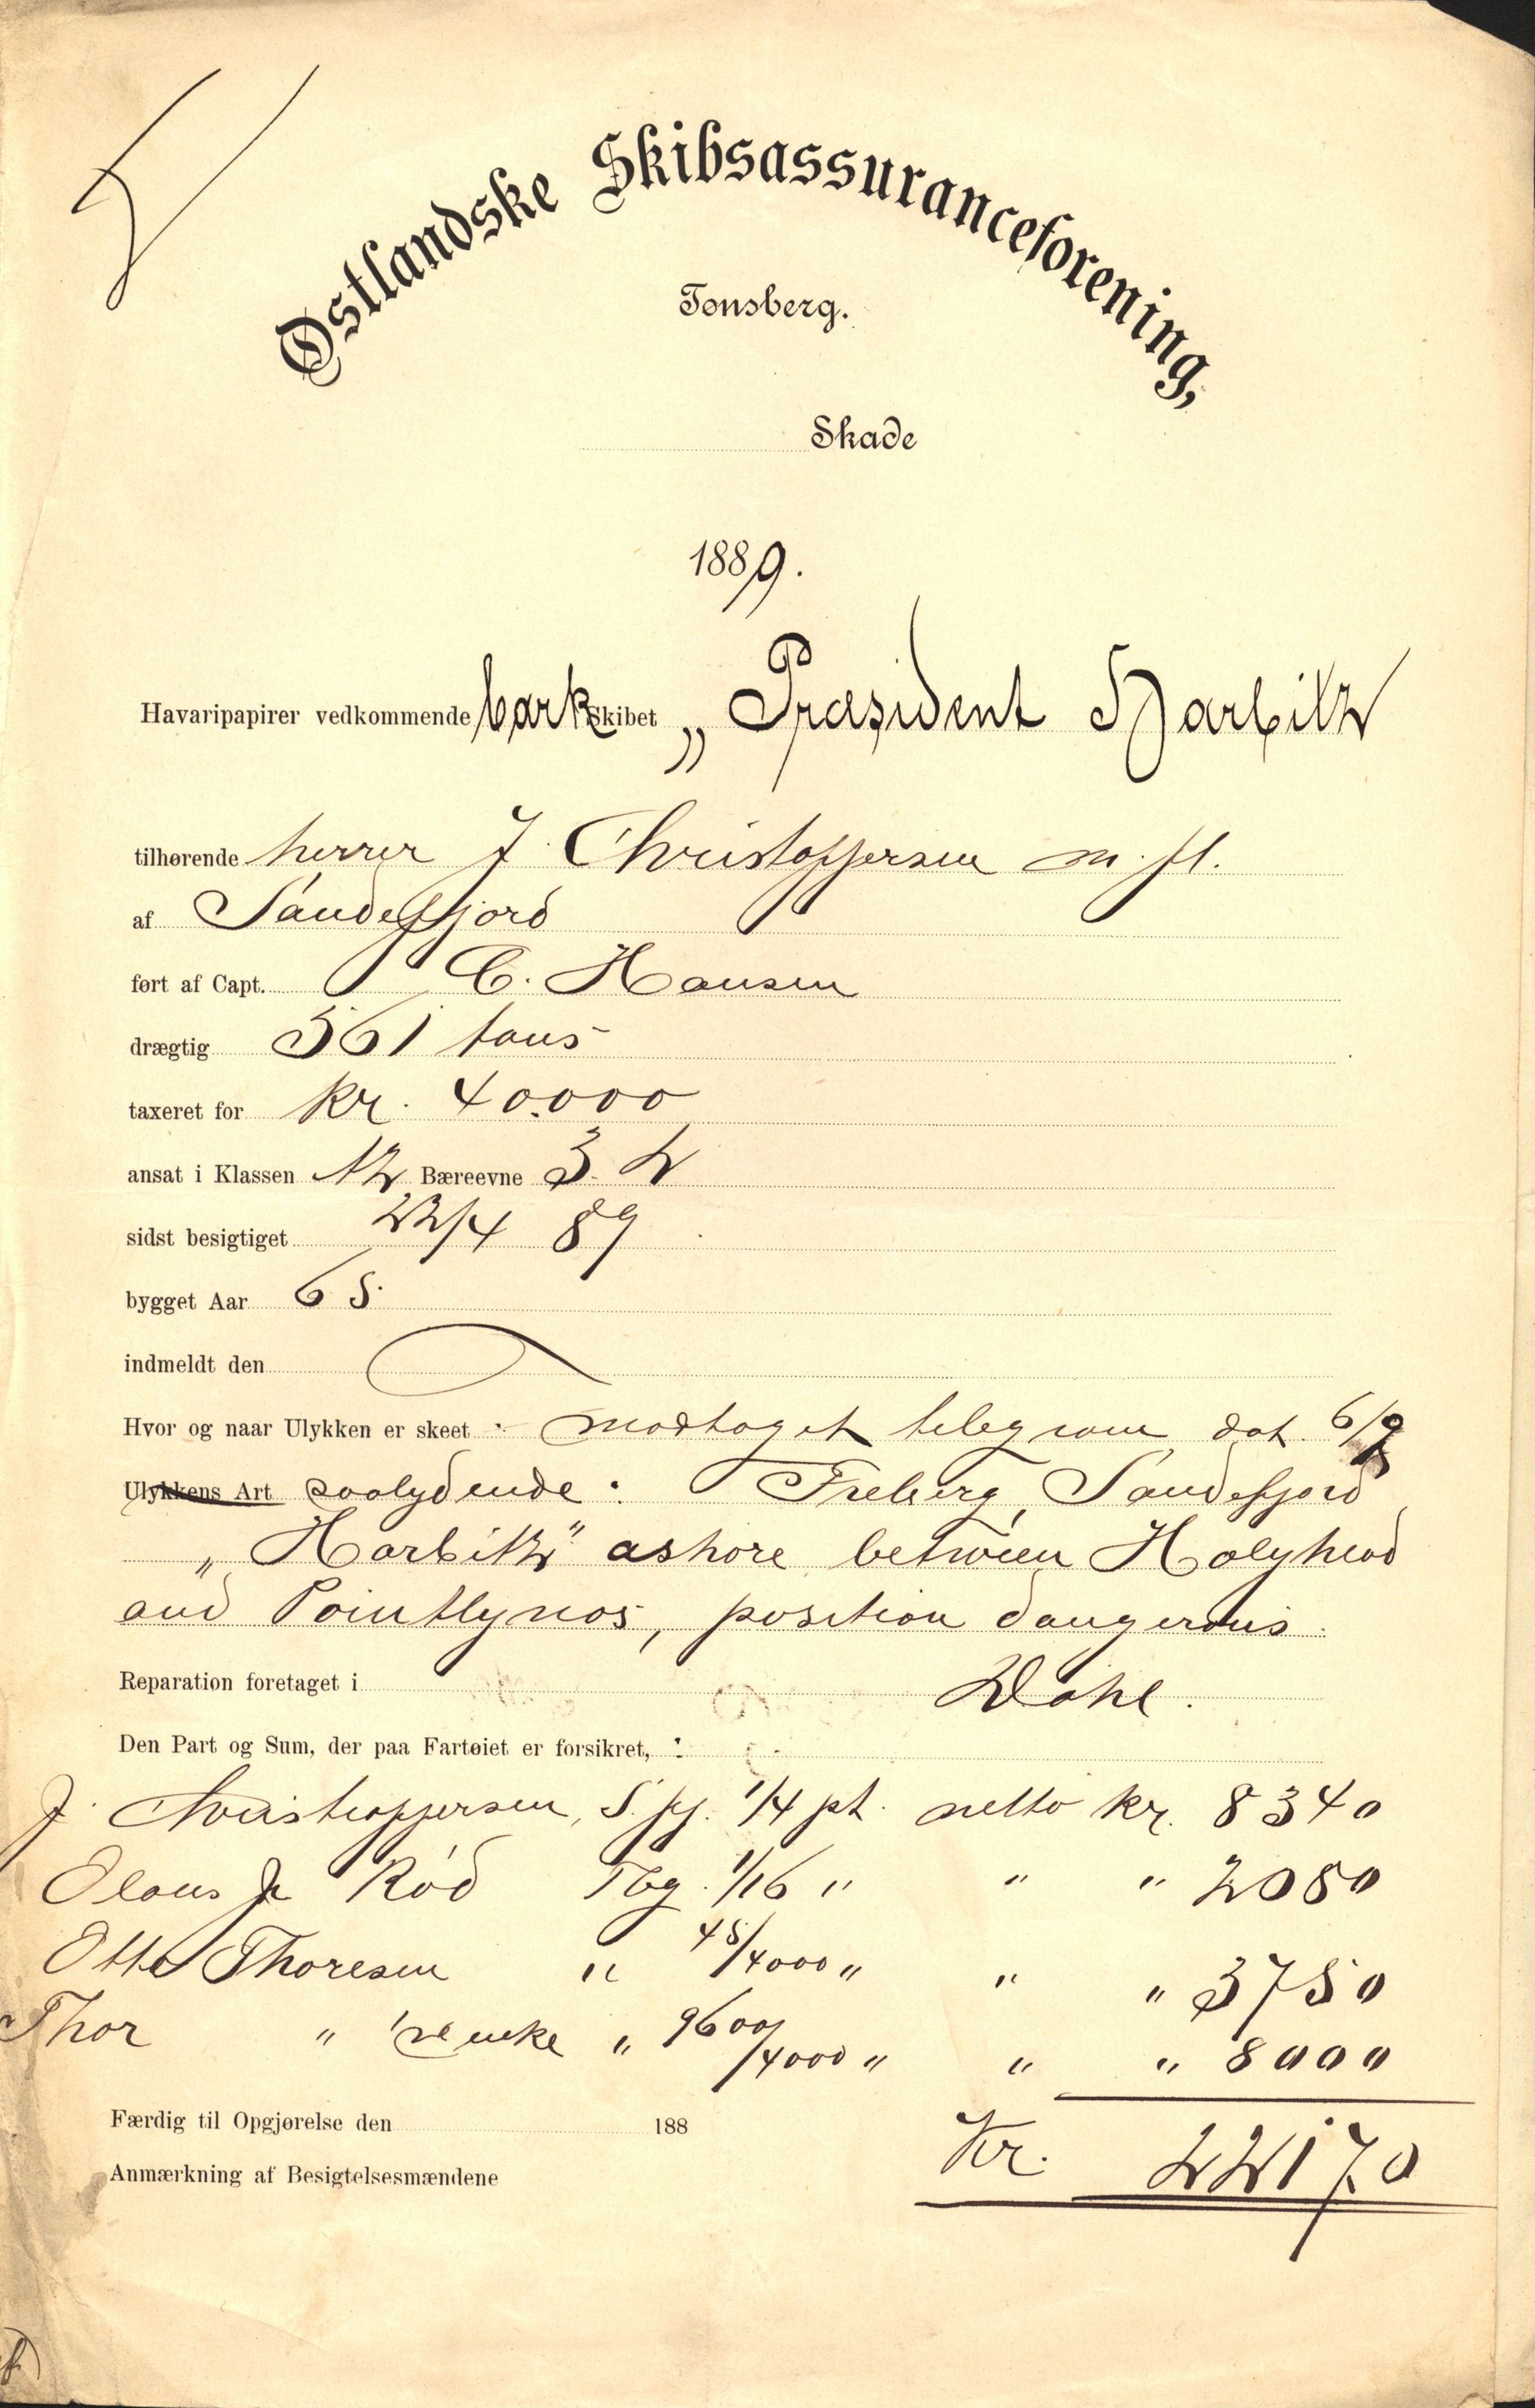 Østlandske Skibsassuranceforening,
Tønsberg.
Skade
1889.
Havaripapirer vedkommende bark Skibet „Præsident Harbitz
tilhørende herrer J. Christoffersen m. fl.
af Sandefjord
ført af Capt. C. Hansen
drægtig 361 tons
taxeret for Kr. 40.000
ansat i Klassen A2 Bæreevne 3. 2
sidst besigtiget 22/4 89
bygget Aar 65
indmeldt den
Hvor og naar Ulykken er skeet :- modtaget telegram dat. 6/9
Ulykkens Art saalydende : Freberg, Sandefjord
„Harbitz" ashore between Holyhead
and Pointlynos, position dangerous.
Reparation foretaget i Dahl.
Den Part og Sum, der paa Fartøiet er forsikret, :
J. Christoffersen, S.fj. 1/4 pt. netto kr. 8340
Olaus Rød Tbg. 1/16 " " " 2080
Otto Thoresen " 45/4000 " " " 3750
Thor " enke " 9600/4000 " " " 8000
Færdig til Opgjørelse den 188 Kr. 22170
Anmærkning af Besigtelsesmændene